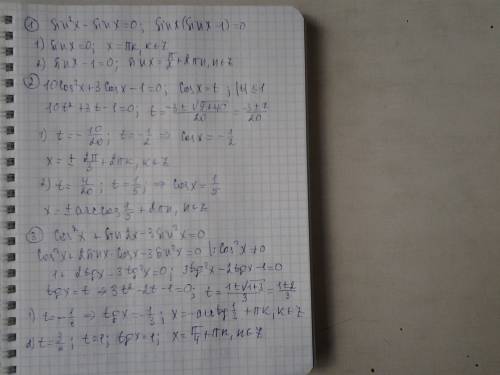 ① sin²x - sinx = 0; sinx(sinx-1)=0
1) sinx=0; x=πk, k∈Z
2) sinx-1=0; sinx=π/2+2πn, n∈Z
② 10cos²x+3cosx-1=0; cosx=t, |t|≤1
10t²+3t-1=0; t=(-3±√(9+40))/20=(-3±7)/20
1) t=-10/20; t=-1/2 ⇒ cosx=-1/2
x=± 2π/3+2πk, k∈Z
2) t=4/20; t=1/5; ⇒ cosx=1/5
x=±arccos 1/5+2πn, n∈Z
③ cos²x+sin2x-3sin²x=0
cos²x+2sinx·cosx-3sin²x=0 |:cos²x≠0
1+2tgx-3tg²x=0; 3tg²x-2tgx-1=0
tgx=t ⇒ 3t²-2t-1=0; t=(1±√(1+3))/3=(1±2)/3
1) t=-1/3 ⇒ tgx=-1/3; x=-arctg 1/3+πk, k∈Z
2) t=3/3; t=1; tgx=1; x=π/4+πn, n∈Z